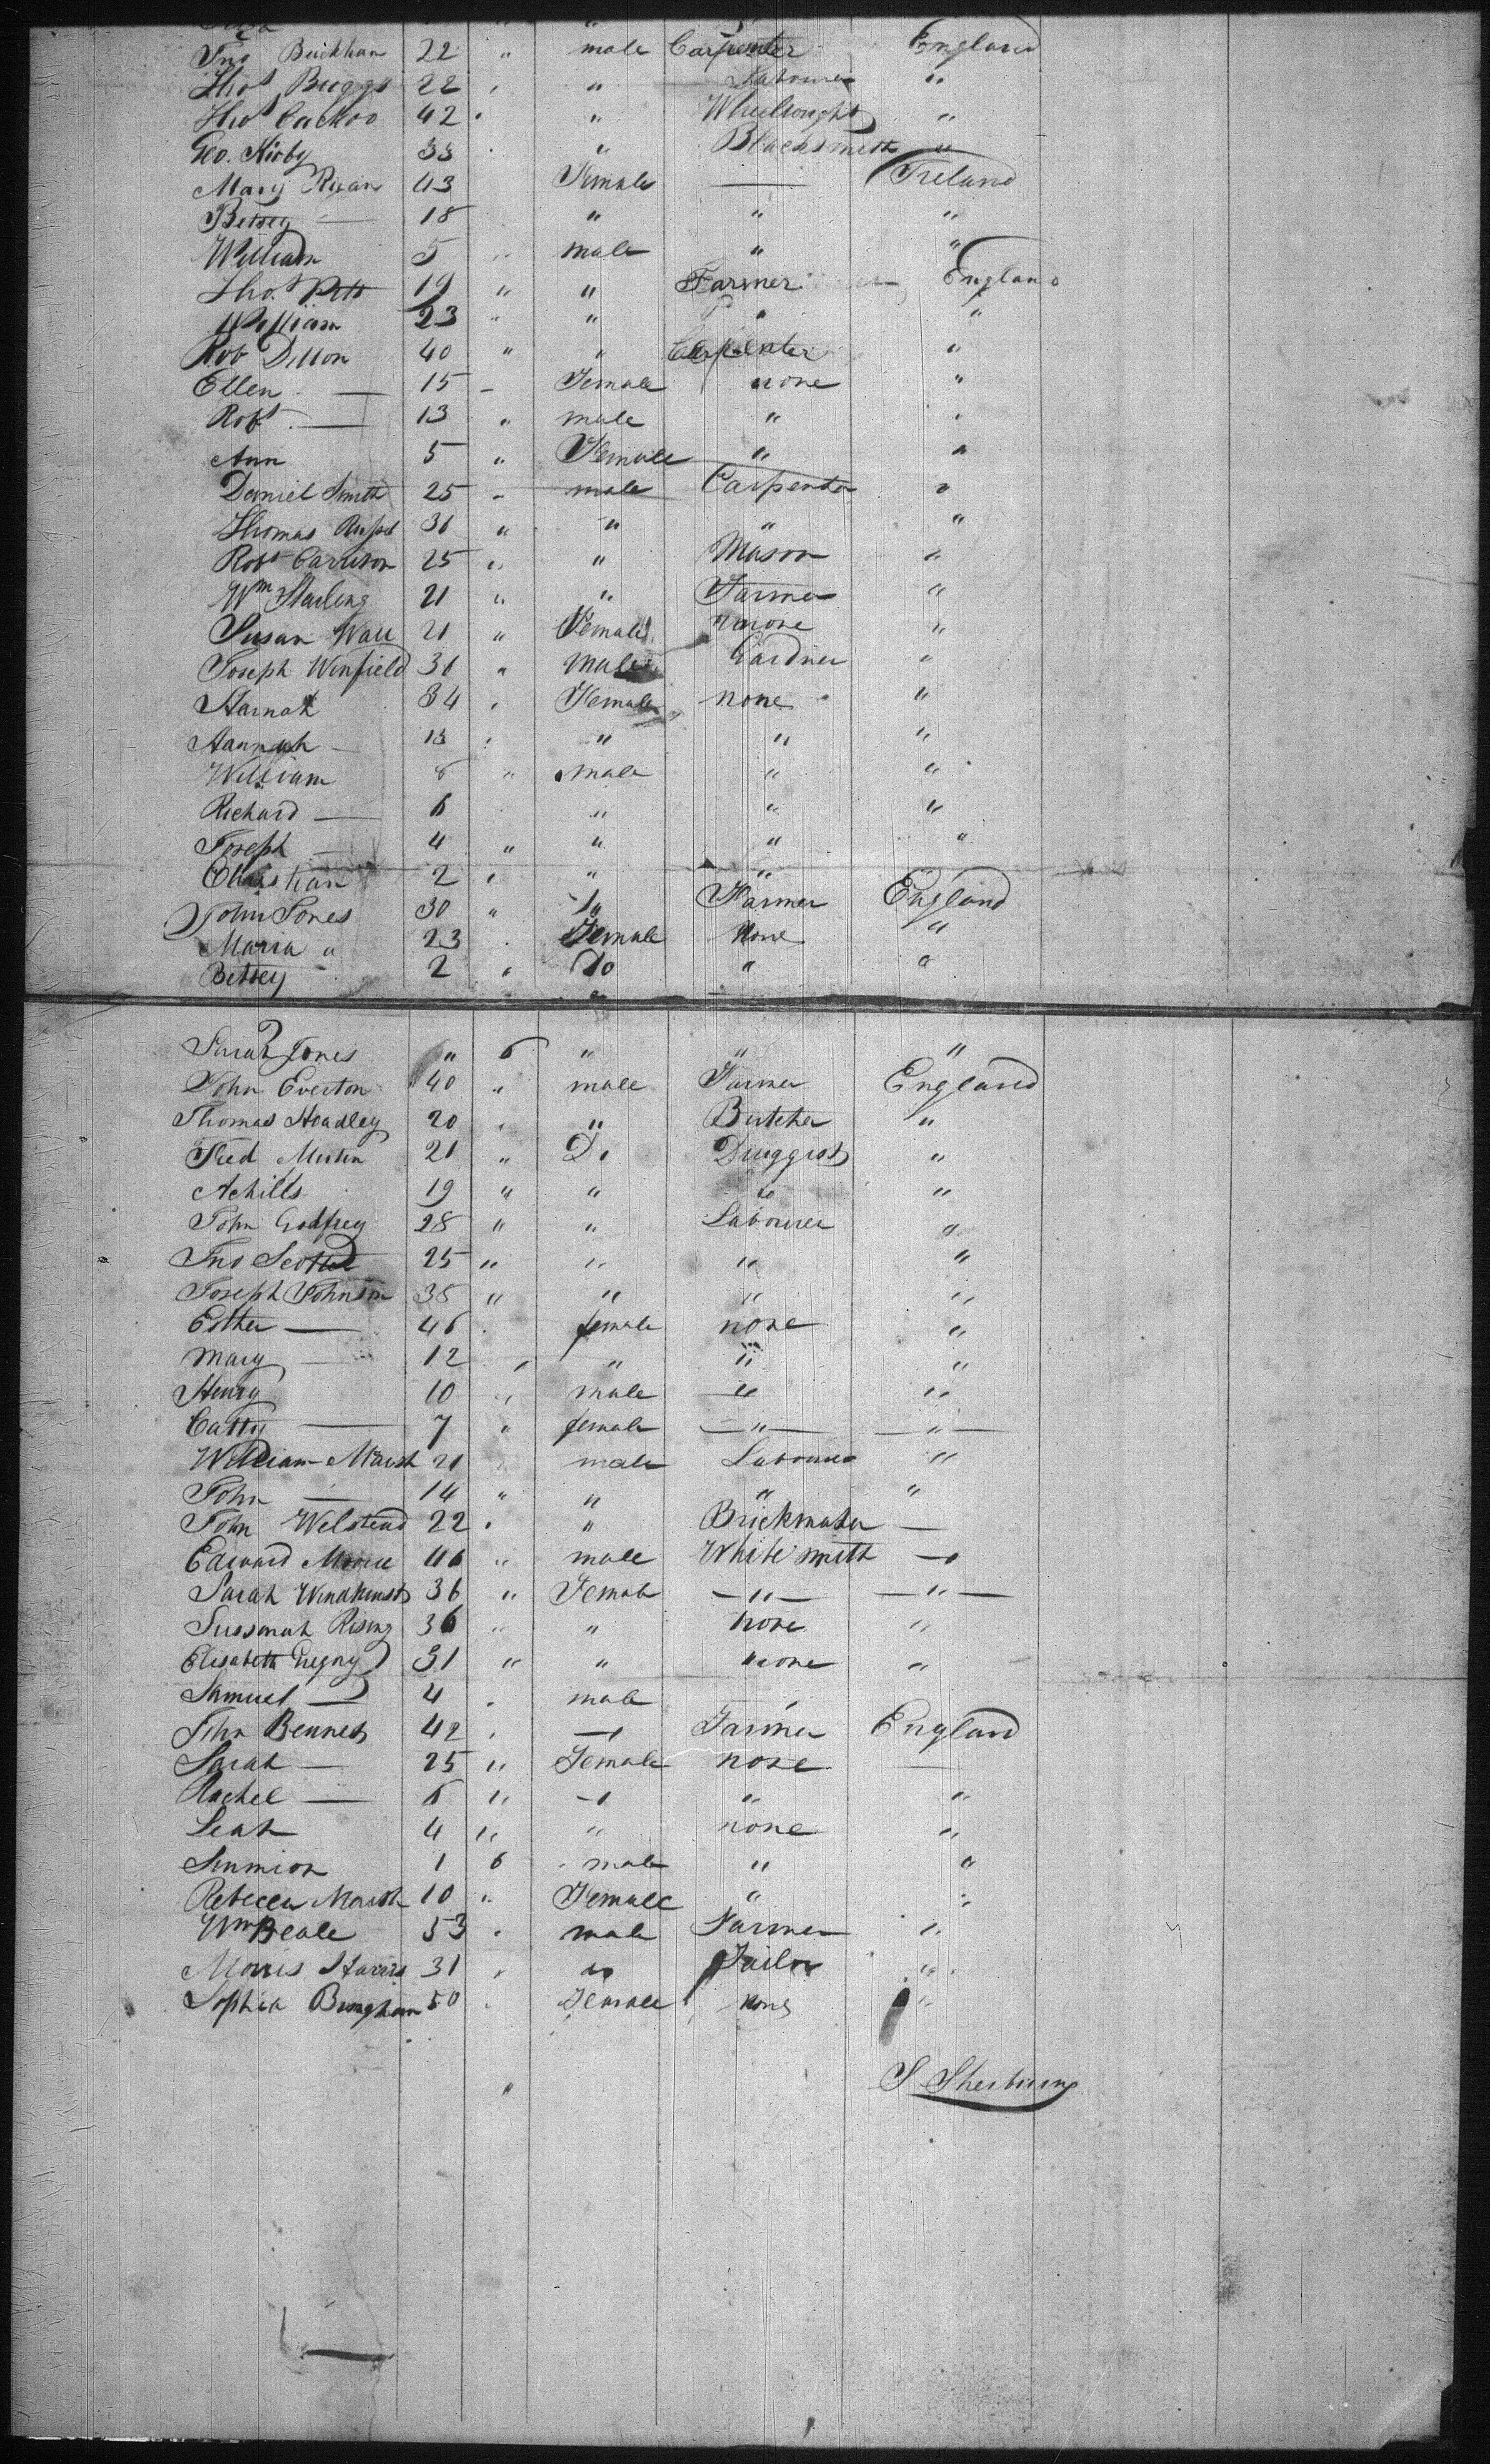 Jno 22 " male Carpenter England
Thos Buggs 22 " " Labourer "
Thos 42 " " Wheelwright "
Geo. Kirby 33 " Blacksmith "
Mary 43 Female — Ireland
Betsey — 18 " " "
William 5 " male " "
Thos. Pitt 19 " " Farmer England
William 23 " " " "
Rob Dillon 40 " " Carpenter "
Ellen — 15 " Female none "
Robt — 13 " male " "
Ann 5 " Female " "
Daniel Smith 25 " male Carpenter "
Thomas 31 " " " "
Robt 25 " " Mason "
Wm Starling 21 " " Farmer "
Susan 21 " Female none "
Joseph Winfield 36 " male Gardner "
Harnah 34 " Female none "
Hannah — 13 " " " "
William 8 " male " "
Richard — 6 " " "
Joseph — 4 " " " "
Christian 2 " " "
John Jones 30 " " Farmer England
Maria " 23 Female None "
Betsey 2 " Do " "
Sarah Jones " 6 " " "
John Everton 40 " male Farmer England
Thomas Hoadley 20 " " Butcher "
Fred 21 " Do Druggist "
Achills 19 " " do "
John Godfrey 28 " " Labourer "
Jno 25 " " " "
Joseph Johnson 35 " " " "
Esther — 46 female none "
Mary — 12 " " " "
Henry 10 " male " "
Catty — 7 " female — " — — " —
William Marsh 21 " male Labourer "
John — 14 " " " "
John Welstead 22 " " Brickmaker —
Edward Moore 46 " male White smith —
Sarah 36 " Female — " — — " —
Sussanah Rising 36 " " none "
Elisabeth 31 " " none "
Samuel — 4 " male "
John Bennet 42 " — Farmer England
Sarah — 25 " Female none —
Rachel — 6 " — " "
Leah 4 " " none "
1 6 male " "
Rebecca Marsh 10 " Female " "
Wm Beale 53 " male Farmer "
Morris Harris 31 " do Tailor "
Sophia 50 " Female none "
S Sherburne